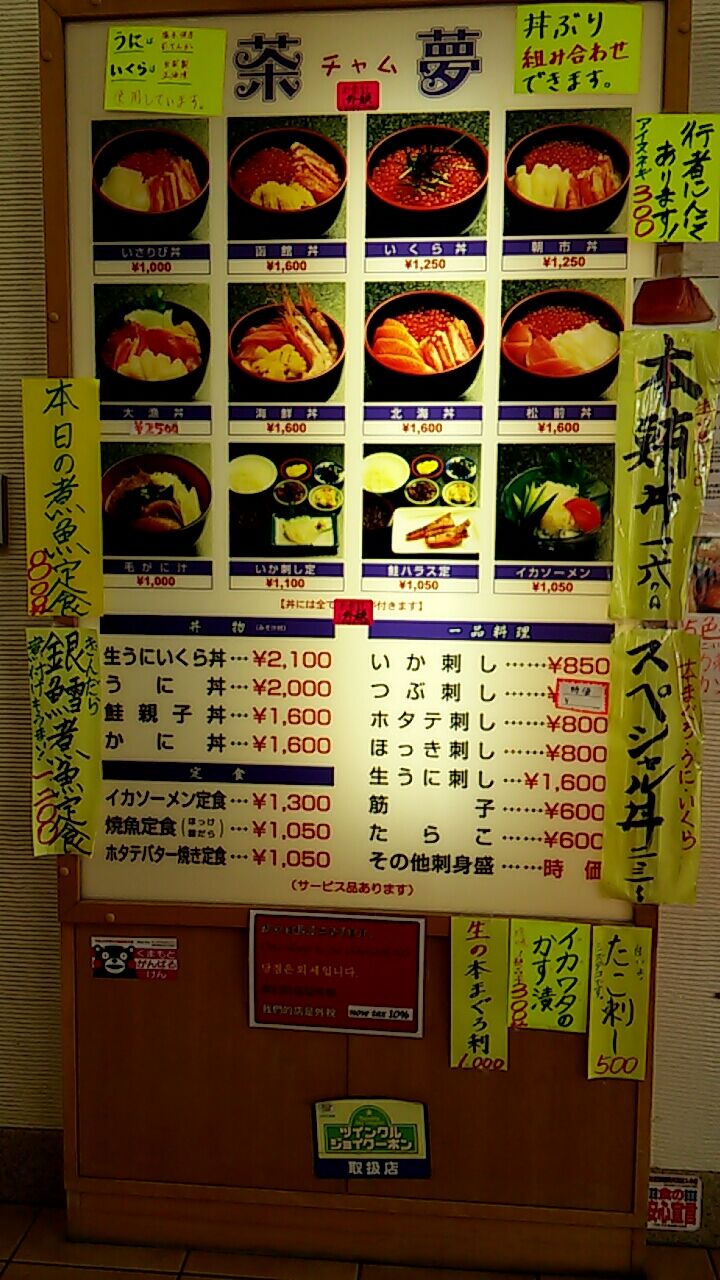 うに
いくらは
使用しています。
茶 チャム 夢
外税
丼ぶり
組み合わせ
できます。
行者にんにく
あります!
アイヌネギ 300
いさりび丼
¥1,000
函館丼
¥1,600
いくら丼
¥1,250
朝市丼
¥1,250
大漁丼
¥2500
海鮮丼
¥1,600
北海丼
¥1,600
松前丼
¥1,600
毛がに汁
¥1,000
いか刺し定
¥1,100
鮭ハラス定
¥1,050
イカソーメン
¥1,050
本日の煮魚定食
800
きんだら
銀鱈煮魚定食
煮付けもうまい!
一二00
本鮪丼 一六00
スペシャル丼 二三〜
本まぐろ・うに・いくら
【丼には全て
付きます】
外税
丼物
生うにいくら丼…¥2,100
うに丼…¥2,000
鮭親子丼…¥1,600
かに丼…¥1,600
定食
イカソーメン定食…¥1,300
焼魚定食(ほっけ 銀だら)…¥1,050
ホタテバター焼き定食…¥1,050
一品料理
いか刺し……¥850
つぶ刺し……¥
時価
ホタテ刺し……¥800
ほっき刺し……¥800
生うに刺し…¥1,600
筋子……¥600
たらこ……¥600
その他刺身盛……時価
(サービス品あります)
くまもと
がんばる
けん
당점은 외세입니다.
我們的店是外稅
now tax 10%
生の本まぐろ刺
1,000
イカワタの
かす漬
300
たこ刺し
500
ツインクル
ジョイクーポン
取扱店
食の
安心宣言